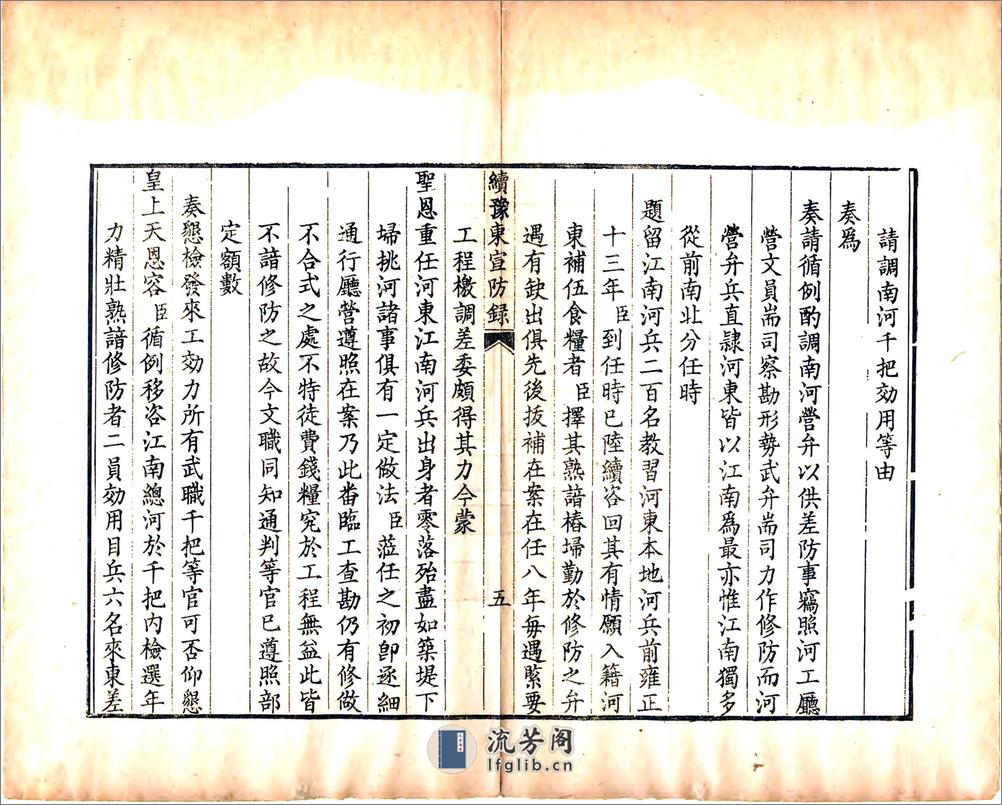 請調南河千把効用等由
奏爲
奏請循例酌調南河營弁以供差防事竊照河工廳
營文員耑司察勘形勢武弁耑司力作修防而河
營弁兵直隷河東皆以江南爲最亦惟江南獨多
從前南北分任時
題留江南河兵二百名教習河東本地河兵前雍正
十三年臣到任時已陸續咨回其有情願入籍河
東補伍食糧者臣擇其熟諳樁埽勤於修防之弁
遇有缺出俱先後拔補在案在任八年每遇緊要
續豫東宣防録
五
工程檄調差委頗得其力今蒙
聖恩重任河東江南河兵出身者零落殆盡如築堤下
埽挑河諸事俱有一定做法臣蒞任之初卽逐細
通行廳營遵照在案乃此畨臨工查勘仍有修做
不合式之處不特徒費錢糧究於工程無益此皆
不諳修防之故今文職同知通判等官已遵照部
定額數
奏懇檢發來工効力所有武職千把等官可否仰懇
皇上天恩容臣循例移咨江南總河於千把內檢選年
力精壯熟諳修防者二員効用目兵六名來東差
流芳阁
lfglib.cn